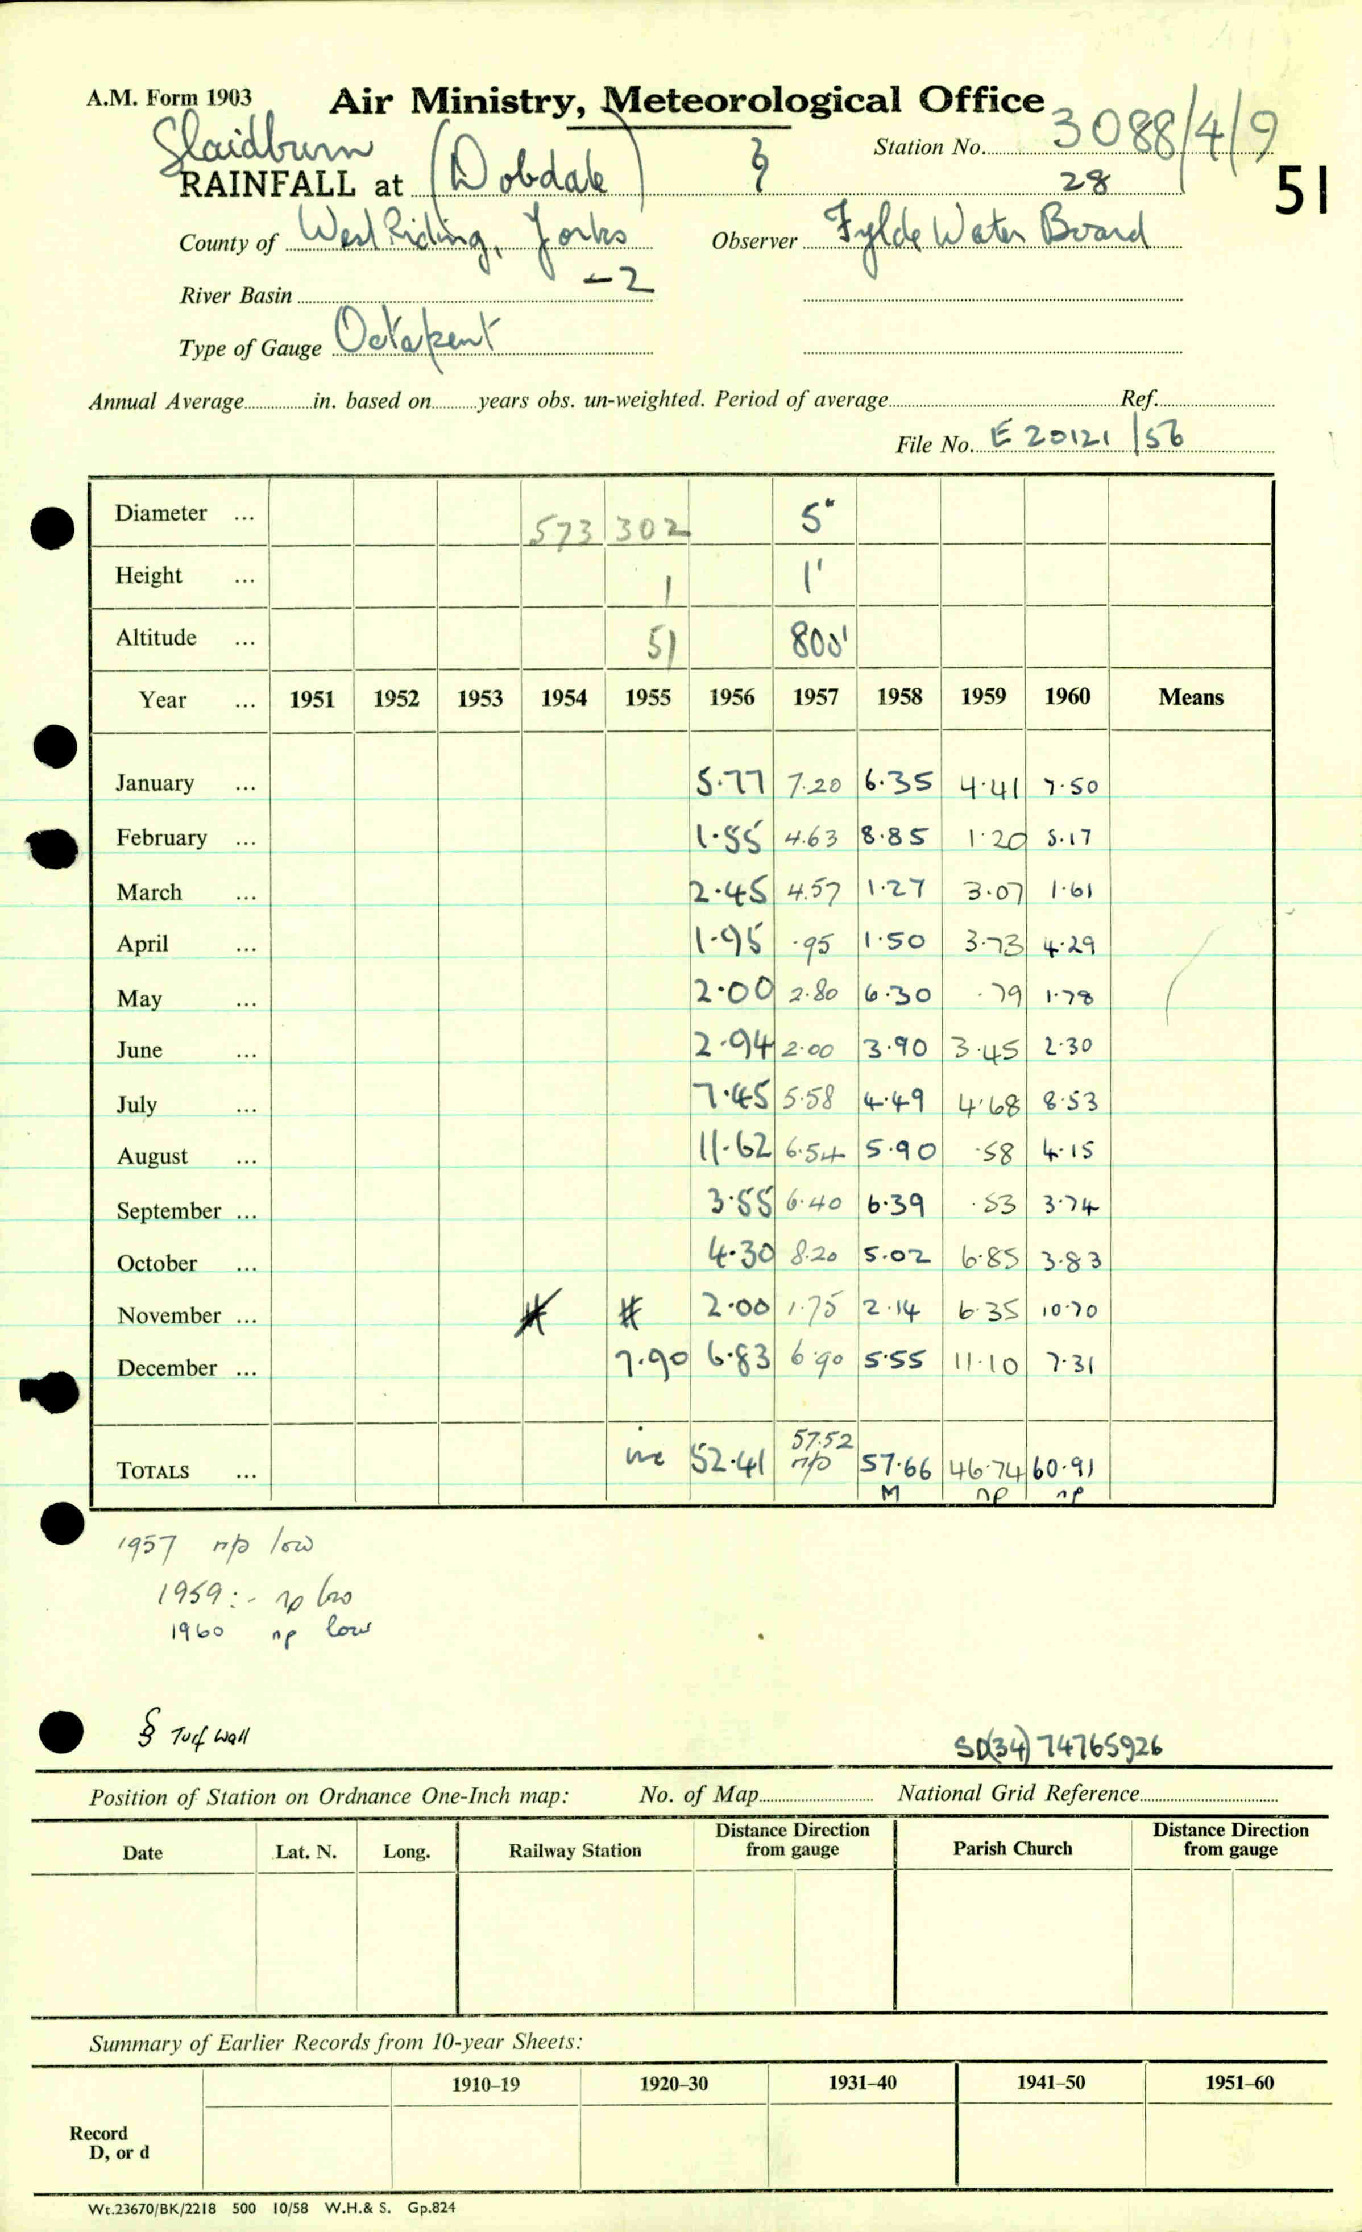 A.M. Form 1903
Air Ministry, Meteorological Office
Slaidburn
Station No. 3088/4/9
RAINFALL at (Dobdale) §
28
51
County of West Riding, Yorks
Observer Fylde Water Board
River Basin -2
Type of Gauge Octapent
Annual Average in. based on years obs. un-weighted. Period of average Ref.
File No. E 20121/56
Diameter ... 573 302 5"
Height ... 1 1'
Altitude ... 51 800'
Year ... 1951 1952 1953 1954 1955 1956 1957 1958 1959 1960 Means
January ... 5.77 7.20 6.35 4.41 7.50
February ... 1.55 4.63 8.85 1.20 5.17
March ... 2.45 4.57 1.27 3.07 1.61
April ... 1.95 .95 1.50 3.73 4.29
May ... 2.00 2.80 6.30 .79 1.78
June ... 2.94 2.00 3.90 3.45 2.30
July ... 7.45 5.58 4.49 4.68 8.53
August ... 11.62 6.54 5.90 .58 4.15
September ... 3.55 6.40 6.39 .53 3.74
October ... 4.30 8.20 5.02 6.85 3.83
November ... # # 2.00 1.75 2.14 6.35 10.70
December ... 7.90 6.83 6.90 5.55 11.10 7.31
57.52
TOTALS ... inc 52.41 n/p 57.66 46.74 60.91
M np np
1957 n/p low
1959:- np low
1960 np low
§ Turf Wall
SD(34) 74765926
Position of Station on Ordnance One-Inch map: No. of Map National Grid Reference
Date Lat. N. Long. Railway Station Distance Direction from gauge Parish Church Distance Direction from gauge
Summary of Earlier Records from 10-year Sheets:
1910–19 1920–30 1931–40 1941–50 1951–60
Record
D, or d
Wt.23670/BK/2218 500 10/58 W.H.& S. Gp.824